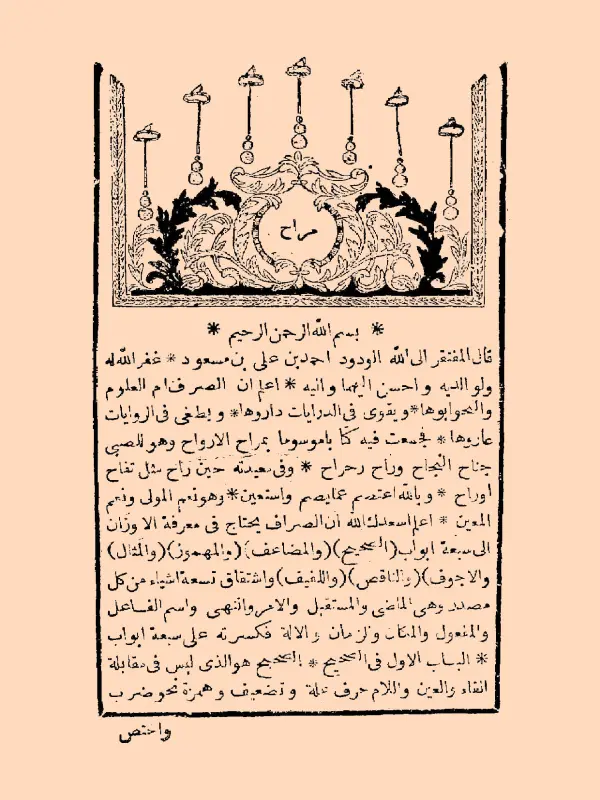 مراح
* بسم الله الرحمن الرحيم *
قال المفتقر الى الله الودود احمد بن على بن مسعود * غفر الله له
ولوالديه واحسن اليهما واليه * اعلم ان الصرف ام العلوم
والنحو ابوها * ويقوى فى الدرايات داروها * ويطغى فى الروايات
عاروها * فجمعت فيه كتابا موسوما بمراح الارواح وهو للصبى
جناح النجاح وراح رحراح * وفى معيدته حين راح مثل تفاح
اوراح * وبالله اعتصم عمايصم واستعين * وهو نعم المولى ونعم
المعين * اعلم اسعدك الله ان الصراف يحتاج فى معرفة الاوزان
الى سبعة ابواب (الصحيح) (والمضاعف) (والمهموز) (والمثال)
والاجوف) (والناقص) (واللفيف) واشتقاق تسعة اشياء من كل
مصدر وهى الماضى والمستقبل والامر والنهى واسم الفاعل
والمفعول والمكان والزمان والالة فكسرته على سبعة ابواب
* الباب الاول فى الصحيح * الصحيح هو الذى ليس فى مقابلة
الفاء والعين واللام حرف علة وتضعيف وهمزة نحو ضرب
واختص